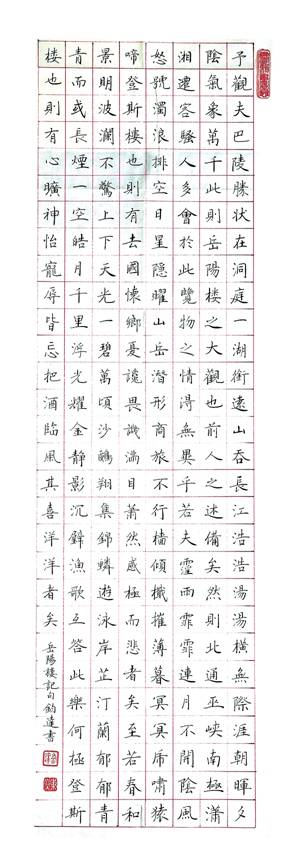 予觀夫巴陵勝状在洞庭一湖銜遠山吞長江浩浩湯湯橫無際涯朝暉夕
陰氣象萬千此則岳陽楼之大觀也前人之述備矣然則北通巫峽南極瀟
湘遷客騷人多會於此覽物之情得無異乎若夫霪雨霏霏連月不開陰風
怒號濁浪排空日星隱曜山岳潛形商旅不行檣傾檝摧薄暮冥冥虎嘯猿
啼登斯楼也則有去國懷鄉憂讒畏譏滿目蕭然感極而悲者矣至若春和
景明波瀾不驚上下天光一碧萬頃沙鷗翔集錦鱗遊泳岸芷汀蘭郁郁青
青而或長煙一空皓月千里浮光耀金靜影沉璧漁歌互答此樂何極登斯
楼也則有心曠神怡寵辱皆忘把酒臨風其喜洋洋者矣
岳陽樓記句鈞達書